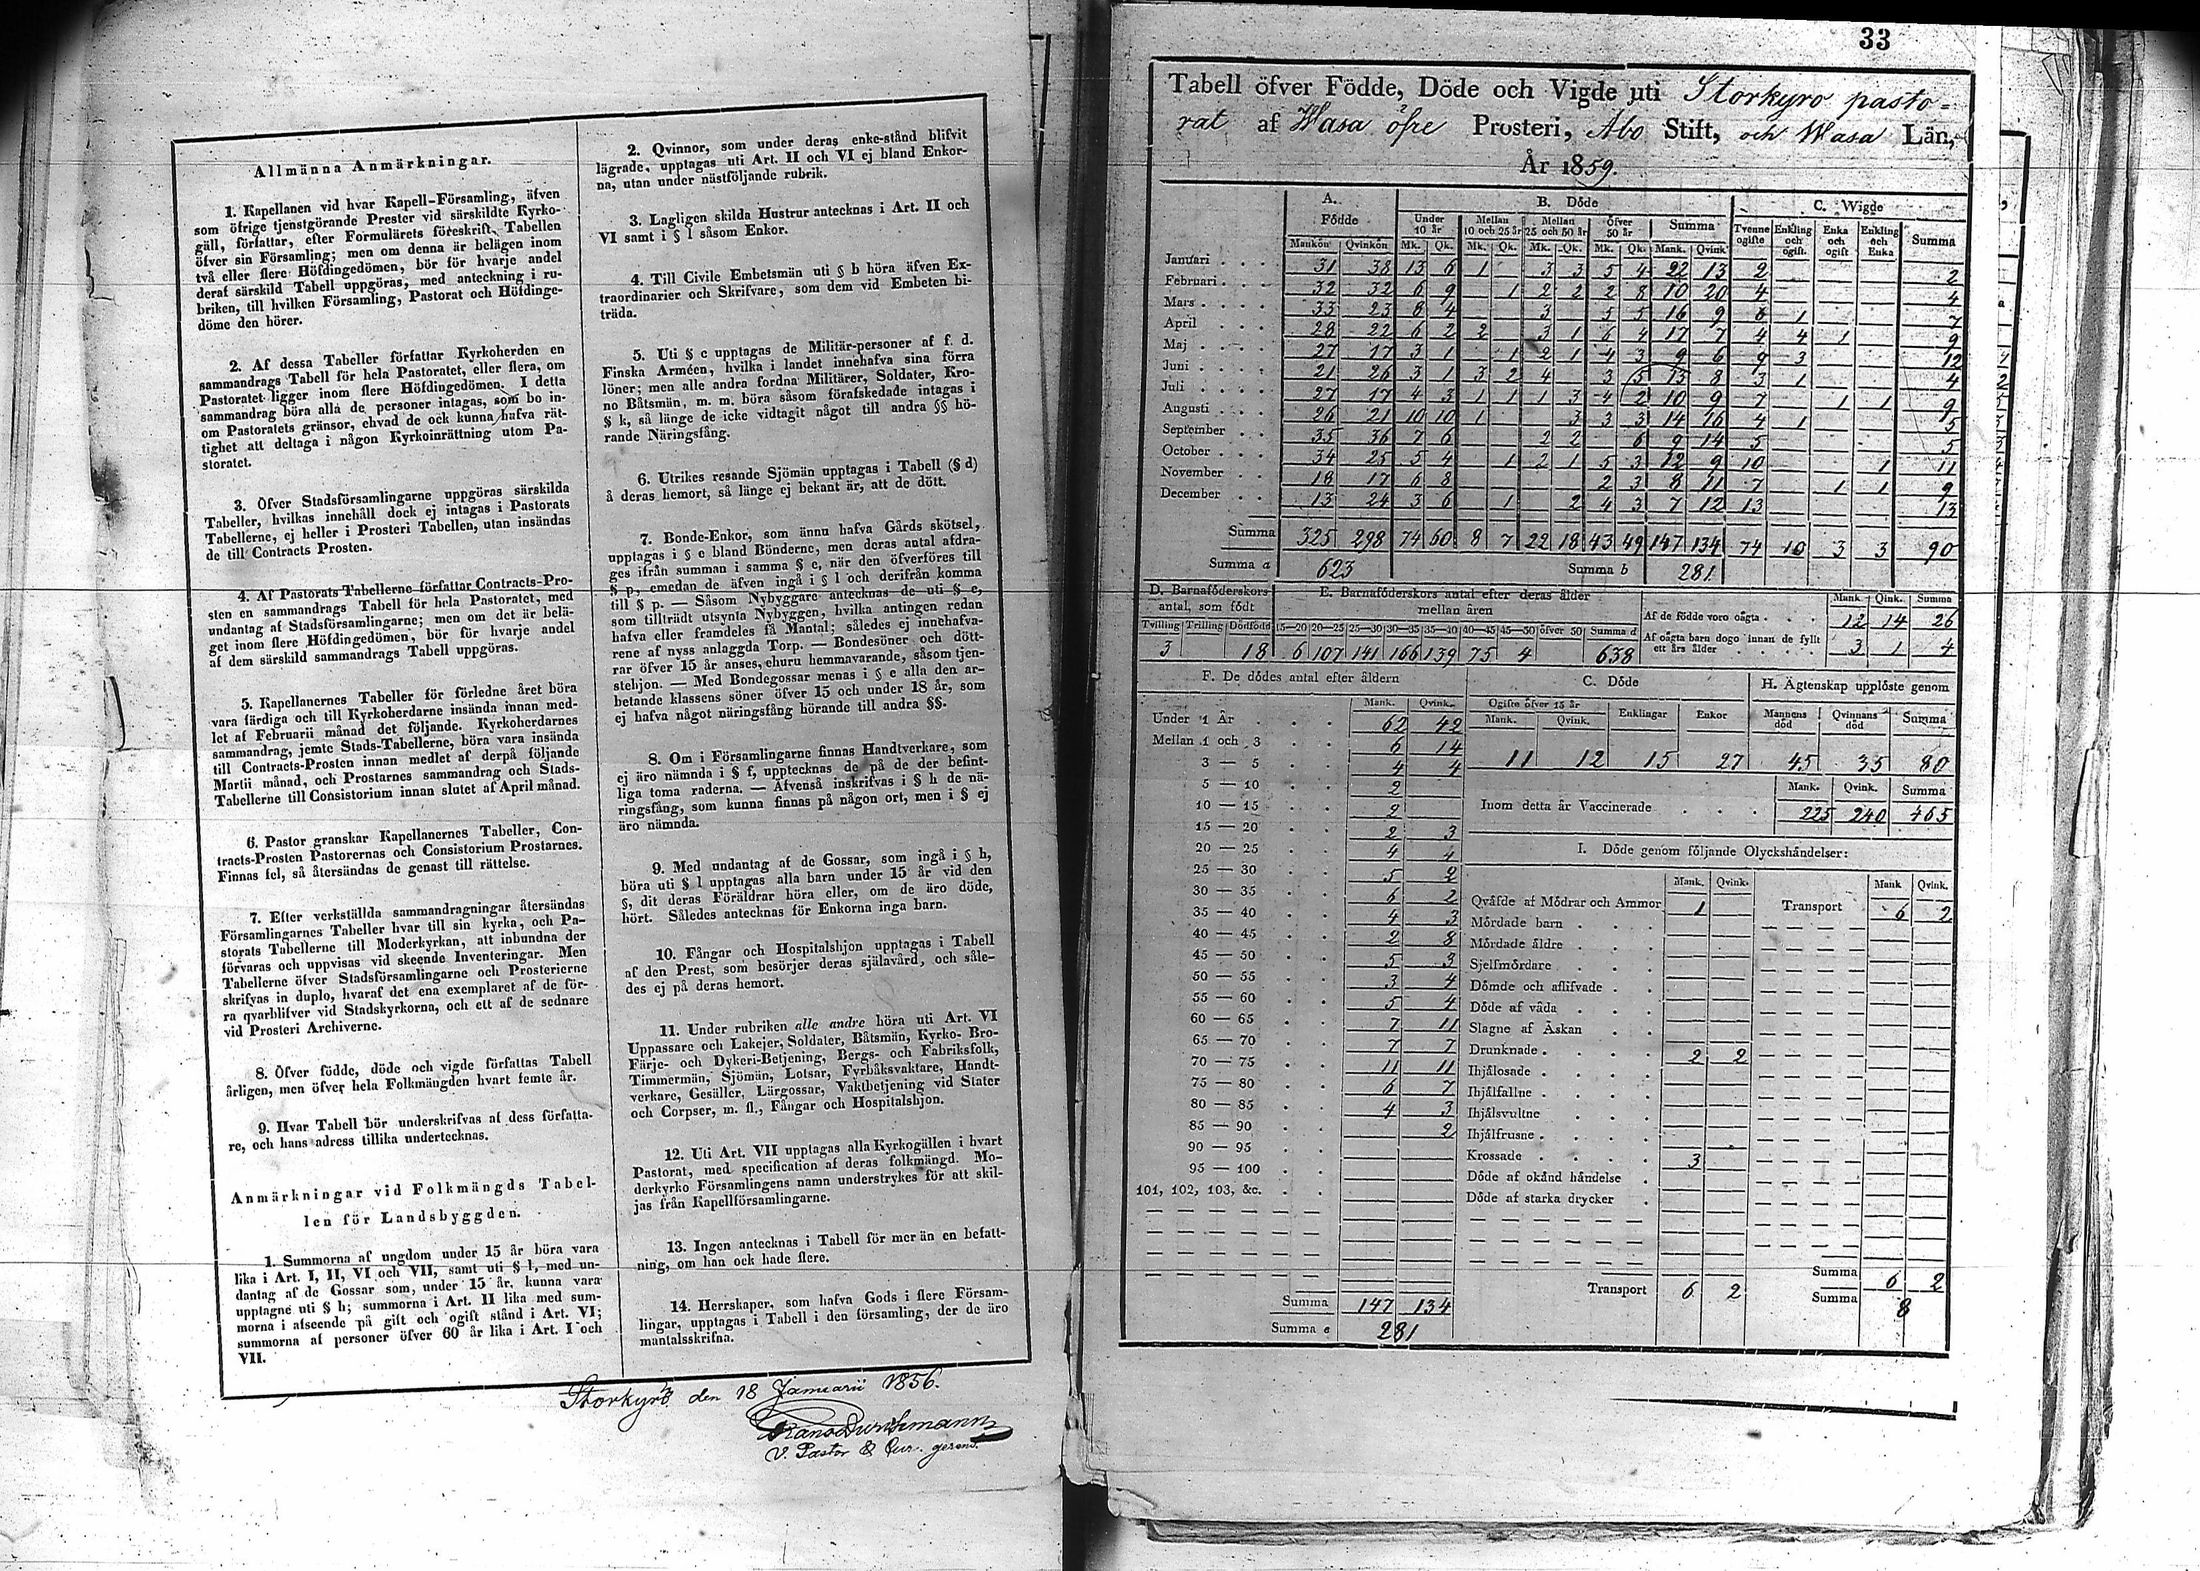 Allmänna Anmärkningar.
1. Kapellanen vid hvar Kapell-Församling, äfven
som öfrige tjenstgörande Prester vid särskildte Kyrko-
gäll, författar, efter Formulärets föreskrift, Tabellen
öfver sin Församling; men om denna är belägen inom
två eller flere Höfdingedömen, bör för hvarje andel
deraf särskild Tabell uppgöras, med anteckning i ru-
briken, till hvilken Församling, Pastorat och Höfdinge-
döme den hörer.
2. Af dessa Tabeller författar Kyrkoherden en
sammandrags Tabell för hela Pastoratet, eller flera, om
Pastoratet ligger inom flere Höfdingedömen. I detta
sammandrag böra alla de personer intagas, som bo in-
om Pastoratets gränsor, ehvad de ock kunna hafva rät-
tighet att deltaga i någon Kyrkoinrättning utom Pa-
storatet.
3. Öfver Stadsförsamlingarne uppgöras särskilda
Tabeller, hvilkas innehåll dock ej intagas i Pastorats
Tabellerne, ej heller i Prosteri Tabellen, utan insändas
de till Contracts Prosten.
4. Af Pastorats Tabellerne författar Contracts-Pro-
sten en sammandrags Tabell för hela Pastoratet, med
undantag af Stadsförsamlingarne; men om det är belä-
get inom flere Höfdingedömen, bör för hvarje andel
af dem särskild sammandrags Tabell uppgöras.
5. Kapellanernes Tabeller för förledne året böra
vara färdiga och till Kyrkoherdarne insända innan med-
let af Februarii månad det följande. Kyrkoherdarnes
sammandrag, jemte Stads-Tabellerne, böra vara insända
till Contracts-Prosten innan medlet af derpå följande
Martii månad, och Prostarnes sammandrag och Stads-
Tabellerne till Consistorium innan slutet af April månad.
6. Pastor granskar Kapellanernes Tabeller, Con-
tracts-Prosten Pastorernas och Consistorium Prostarnes.
Finnas fel, så återsändas de genast till rättelse.
7. Efter verkställda sammandragningar återsändas
Församlingarnes Tabeller hvar till sin kyrka, och Pa-
storats Tabellerne till Moderkyrkan, att inbundna der
förvaras och uppvisas vid skeende Inventeringar. Men
Tabellerne öfver Stadsförsamlingarne och Prosterierne
skrifvas in duplo, hvaraf det ena exemplaret af de för-
ra qvarblifver vid Stadskyrkorna, och ett af de sednare
vid Prosteri Archiverne.
8. Öfver födde, döde och vigde författas Tabell
årligen, men öfver hela Folkmängden hvart femte år.
9. Hvar Tabell bör underskrifvas af dess författa-
re, och hans adress tillika undertecknas.
Anmärkningar vid Folkmängds Tabel-
len för Landsbyggden.
1. Summorna af ungdom under 15 år böra vara
lika i Art. I, II, VI och VII, samt uti § l, med un-
dantag af de Gossar som, under 15 år, kunna vara
upptagne uti § h; summorna i Art. II lika med sum-
morna i afseende på gift och ogift stånd i Art. VI;
summorna af personer öfver 60 år lika i Art. I och
VII.
2. Qvinnor, som under deras enke-stånd blifvit
lägrade, upptagas uti Art. II och VI ej bland Enkor-
na, utan under nästföljande rubrik.
3. Lagligen skilda Hustrur antecknas i Art. II och
VI samt i § l såsom Enkor.
4. Till Civile Embetsmän uti § b höra äfven Ex-
traordinarier och Skrifvare, som dem vid Embeten bi-
träda.
5. Uti § c upptagas de Militär-personer af f. d.
Finska Arméen, hvilka i landet innehafva sina förra
löner; men alle andra fordna Militärer, Soldater, Kro-
no Båtsmän, m. m. böra såsom förafskedade intagas i
§ k, så länge de icke vidtagit något till andra §§ hö-
rande Näringsfång.
6. Utrikes resande Sjömän upptagas i Tabell (§ d)
å deras hemort, så länge ej bekant är, att de dött.
7. Bonde-Enkor, som ännu hafva Gårds skötsel,
upptagas i § e bland Bönderne, men deras antal afdra-
ges ifrån summan i samma § e, när den öfverföres till
§ p, emedan de äfven ingå i § l och derifrån komma
till § p. — Såsom Nybyggare antecknas de uti § e,
som tillträdt utsynta Nybyggen, hvilka antingen redan
hafva eller framdeles få Mantal; således ej innehafva-
rene af nyss anlaggda Torp. — Bondesöner och dött-
rar öfver 15 år anses, ehuru hemmavarande, såsom tjen-
stehjon. — Med Bondegossar menas i § e alla den ar-
betande klassens söner öfver 15 och under 18 år, som
ej hafva något näringsfång hörande till andra §§.
8. Om i Församlingarne finnas Handtverkare, som
ej äro nämnda i § f, upptecknas de på de der befint-
liga toma raderna. — Äfvenså inskrifvas i § h de nä-
ringsfång, som kunna finnas på någon ort, men i § ej
äro nämnda.
9. Med undantag af de Gossar, som ingå i § h,
böra uti § l upptagas alla barn under 15 år vid den
§, dit deras Föräldrar höra eller, om de äro döde,
hört. Således antecknas för Enkorna inga barn.
10. Fångar och Hospitalshjon upptagas i Tabell
af den Prest, som besörjer deras själavård, och såle-
des ej på deras hemort.
11. Under rubriken alle andre höra uti Art. VI
Uppassare och Lakejer, Soldater, Båtsmän, Kyrko- Bro-
Färje- och Dykeri-Betjening, Bergs- och Fabriksfolk,
Timmermän, Sjömän, Lotsar, Fyrbåksvaktare, Handt-
verkare, Gesäller, Lärgossar, Vaktbetjening vid Stater
och Corpser, m. fl., Fångar och Hospitalshjon.
12. Uti Art. VII upptagas alla Kyrkogällen i hvart
Pastorat, med specification af deras folkmängd. Mo-
derkyrko Församlingens namn understrykes för att skil-
jas från Kapellförsamlingarne.
13. Ingen antecknas i Tabell för mer än en befatt-
ning, om han ock hade flere.
14. Herrskaper, som hafva Gods i flere Försam-
lingar, upptagas i Tabell i den församling, der de äro
mantalsskrifna.
Storkyrö den 18 Januarii 1856.
V. Pastor & Cur. gerens.
33
Tabell öfver Födde, Döde och Vigde uti Storkyro pasto-
rat af Wasa öfre Prosteri, Åbo Stift, och Wasa Län,
År 1859.
A. Födde B. Döde C. Wigde
Under 10 år Mellan 10 och 25 år Mellan 25 och 50 år Öfver 50 år Summa Tvenne ogifte Enkling och ogift. Enka och ogift Enkling och Enka Summa
Mankön Qvinkön Mk. Qk. Mk. Qk. Mk. Qk. Mk. Qk. Mank. Qvink
Januari 31 38 13 6 1 3 3 5 4 22 13 2 2
Februari 32 32 6 9 1 2 2 2 8 10 20 4 4
Mars 33 23 8 4 3 5 5 16 9 6 1 7
April 28 22 6 2 2 3 1 6 4 17 7 4 4 1 9
Maj 27 17 3 1 1 2 1 4 3 9 6 9 3 12
Juni 21 26 3 1 3 2 4 3 5 13 8 3 1 4
Juli 27 17 4 3 1 1 1 3 4 2 10 9 7 1 1 9
Augusti 26 21 10 10 1 3 3 3 3 14 16 4 1 5
September 35 36 7 6 2 2 6 9 14 5 5
October 34 25 5 4 1 2 1 5 3 12 9 10 1 11
November 18 17 6 8 2 3 8 11 7 1 1 9
December 13 24 3 6 1 2 4 3 7 12 13 13
Summa 325 298 74 60 8 7 22 18 43 49 147 134 74 10 3 3 90
Summa a 623 Summa b 281
D. Barnaföderskors antal, som födt
Tvilling Trilling Dödfödd
3 18
E. Barnaföderskors antal efter deras ålder
mellan åren
15—20 20—25 25—30 30—35 35—40 40—45 45—50 öfver 50 Summa d
6 107 141 166 139 75 4 638
Mank. Qink. Summa
Af de födde voro oägta 12 14 26
Af oägta barn dogo innan de fyllt
ett års ålder 3 1 4
F. De dödes antal efter åldern
Mank. Qvink.
Under 1 År 62 42
Mellan 1 och 3 6 14
3 — 5 4 4
5 — 10 2
10 — 15 2
15 — 20 2 3
20 — 25 4 4
25 — 30 5 2
30 — 35 6 2
35 — 40 4 3
40 — 45 2 8
45 — 50 5 3
50 — 55 3 4
55 — 60 5 4
60 — 65 7 11
65 — 70 7 7
70 — 75 11 11
75 — 80 6 7
80 — 85 4 3
85 — 90 2
90 — 95
95 — 100
101, 102, 103, &c.
Summa 147 134
Summa e 281
C. Döde
Ogifte öfver 15 år Enklingar Enkor
Mank. Qvink.
11 12 15 27
H. Ägtenskap upplöste genom
Mannens död Qvinnans död Summa
45 35 80
Mank. Qvink. Summa
Inom detta år Vaccinerade 225 240 465
I. Döde genom följande Olyckshändelser:
Mank. Qvink.
Qväfde af Mödrar och Ammor 1
Mördade barn
Mördade äldre
Sjelfmördare
Dömde och aflifvade
Döde af våda
Slagne af Åskan
Drunknade 2 2
Ihjälosade
Ihjälfallne
Ihjälsvultne
Ihjälfrusne
Krossade 3
Döde af okänd händelse
Döde af starka drycker
Transport 6 2
Mank Qvink.
Transport 6 2
Summa 6 2
Summa 8